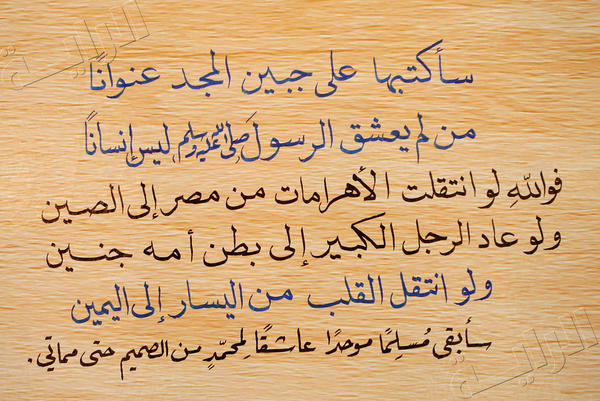 سأكتبها على جبين المجد عنوانًا
من لم يعشق الرسول صلى الله عليه وسلم ليس إنسانًا
فواللهِ لو انتقلت الأهرامات من مصر إلى الصين
ولو عاد الرجل الكبير إلى بطن أمه جنين
ولو انتقل القلب من اليسار إلى اليمين
سأبقى مُسلِمًا موحدًا عاشقًا لمحمّدٍ من الصميم حتى مماتي.
الراية
الراية